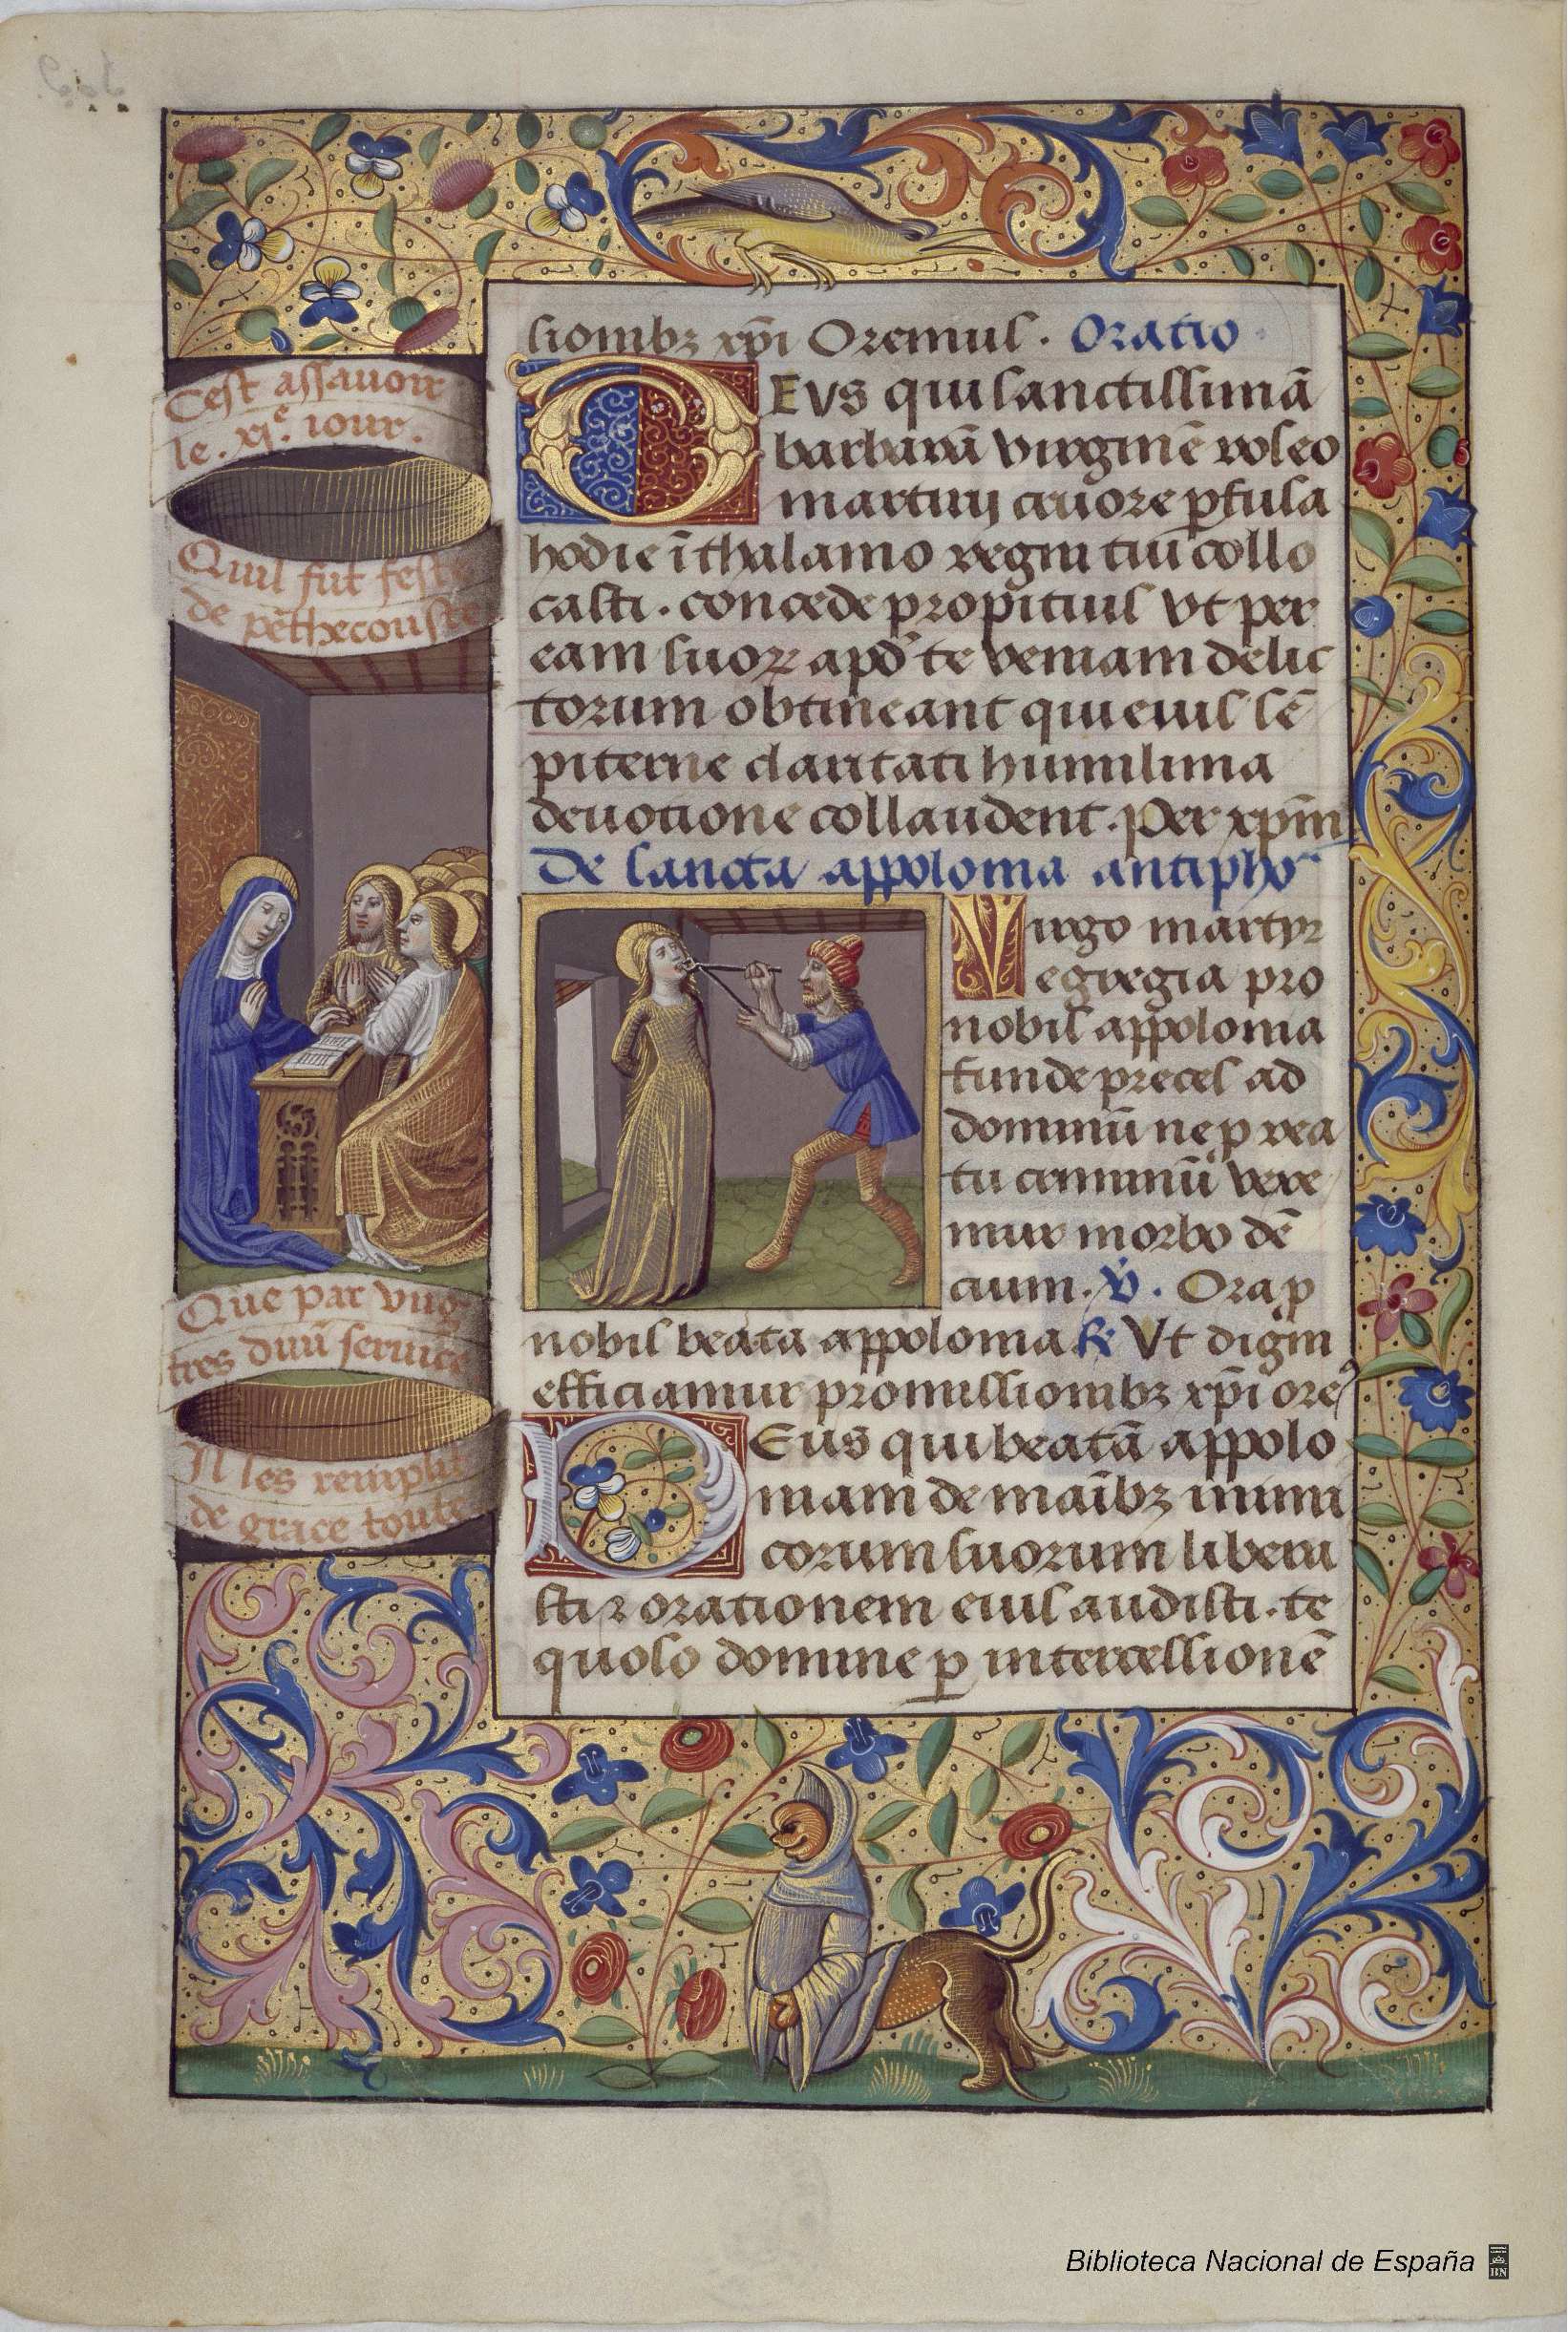 C'est assavoir
le .xj.e iour.
Quil fut feste
de pēthecouste
Que par vng
tres diuī seruice
Il les remplit
de grace toute
sionibꝫ xp̄i Oremus. Oratio
DEVS qui sanctissimā
barbarā virginē roseo
martirij cruore ꝑfusā
hodie ī thalamo regni tui collo
casti. concede propitius vt per
eam suoꝝ apd' te veniam delic
torum obtineant qui eius sē
piterne claritati humilima
deuotione collaudent. Per xp̄m
De sancta appolonia antipho
Virgo martyr
egregia pro
nobis appolonia
funde preces ad
dominū ne ꝓ rea
tu criminū vexe
mur morbo dē
cium. ℣. Ora ꝓ
nobis beata appolonia ℟ Vt digni
efficiamur promissionibꝫ xp̄i ore
DEus qui beatā appolo
niam de maībꝫ inimi
corum suorum libera
sti ⁊ orationem eius audisti. te
quoso domine ꝑ intercessionē
Biblioteca Nacional de España
BN